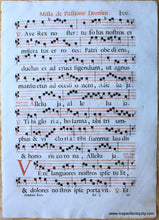 Missa de Passione Domini. Lxxi
Ave Rex noster: tu solus nostros es
misera tus er rores: Patri obedi ens,
ductus es ad cruci figendum, ut agnus
mansuetus ad occisi o nem.
Allelu ja, al le lu
ja.
Ti bi glo ria, ho sanna: tibi
triumphus & victo ria: tibi summæ laudis
& hono ris coro na. Allelu ja.
Vere languores nostros ipse tu lit,
& dolores nostros ipse porta vit. ℣. Et
www.mapsofantiquity.com